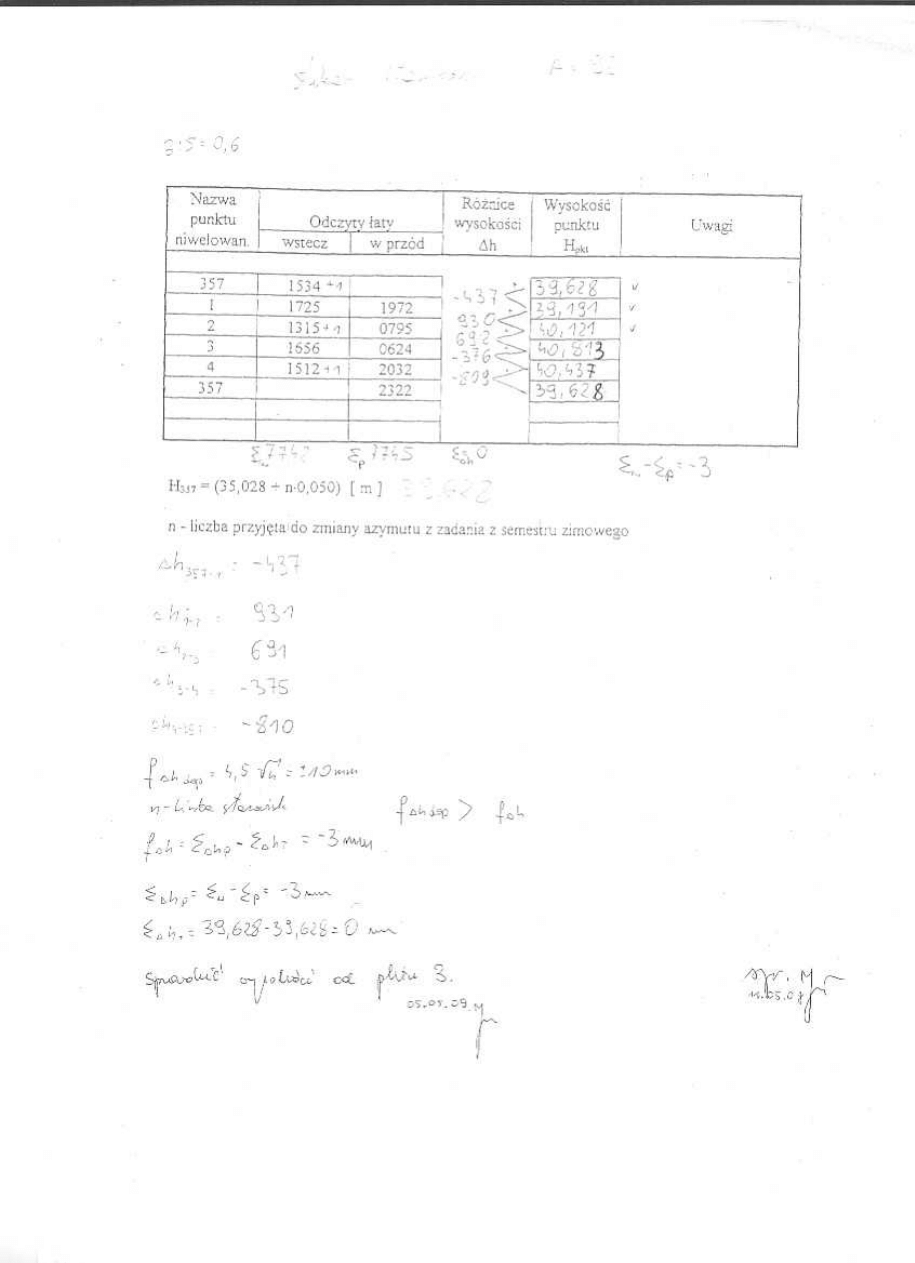 3:5=0,6
Nazwa punktu niwelowan. | Odczyty łaty wstecz | w przód | Różnice wysokości Δh | Wysokość punktu Hpkt | Uwagi
357 1534 +1 39,628 ✓
-437
1 1725 1972 39,191 ✓
930
2 1315 +1 0795 40,121 ✓
692
3 1656 0624 40,813
-376
4 1512 +1 2032 40,437
-809
357 2322 39,628
Σw 7742 Σp 7745 ΣΔh 0 Σw-Σp=-3
H357 = (35,028 + n·0,050) [ m ] 39,628
n - liczba przyjęta do zmiany azymutu z zadania z semestru zimowego
Δh357-1 = -437
Δh1-2 = 931
Δh2-3 = 691
Δh3-4 = -375
Δh4-357 = -810
fΔh dop = 4,5 √n = ±10 mm
n - liczba stanowisk fΔh dop > fΔh
fΔh = ΣΔhp - ΣΔhT = -3 mm
ΣΔhp = Σw - Σp = -3 mm
ΣΔhT = 39,628-39,628= 0 mm
Sprawdzić wysokości od pktu 3.
05.05.09
spr.